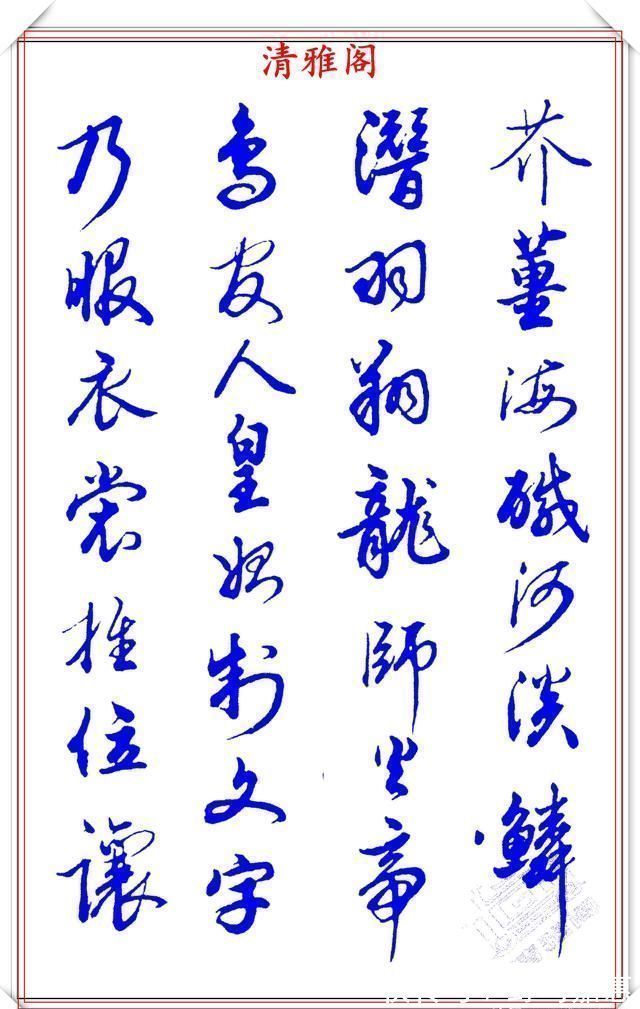 清雅阁
芥薑海醎河淡鱗
潛羽翔龍師火帝
鳥官人皇始制文字
乃服衣裳推位讓